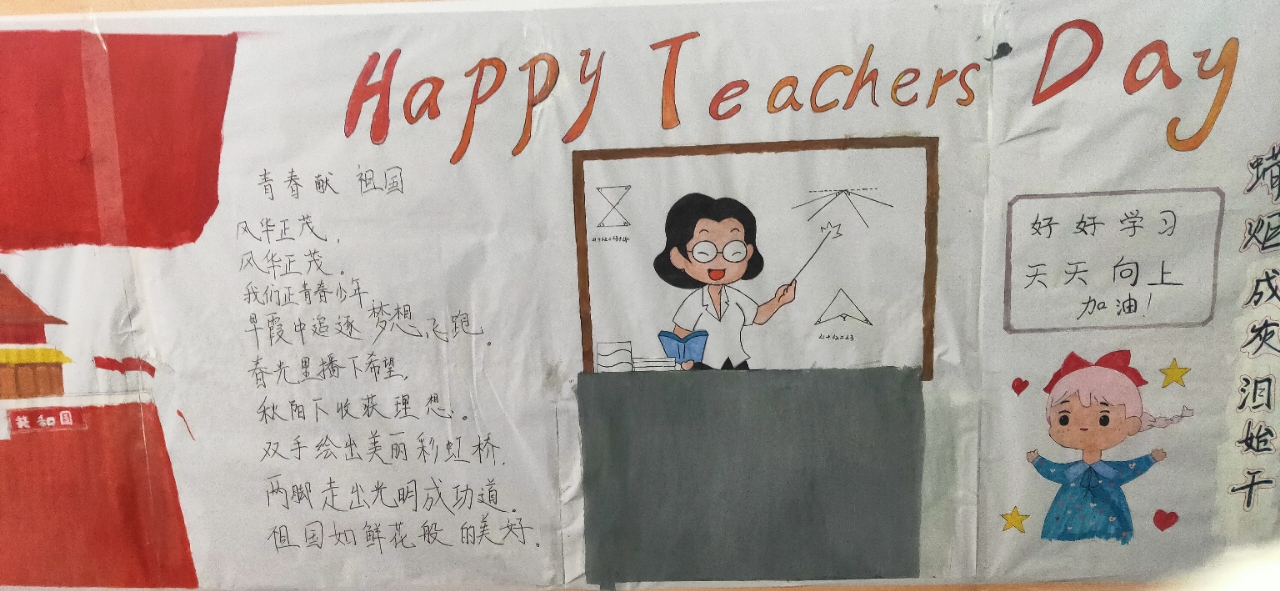 Happy Teachers Day
青春献祖国
风华正茂，
风华正茂。
我们正青春少年
早霞中追逐梦想飞跑。
春光里播下希望，
秋阳下收获理想。
双手绘出美丽彩虹桥，
两脚走出光明成功道。
祖国如鲜花般的美好。
共和国
好好学习
天天向上
加油！
蜡炬成灰泪始干